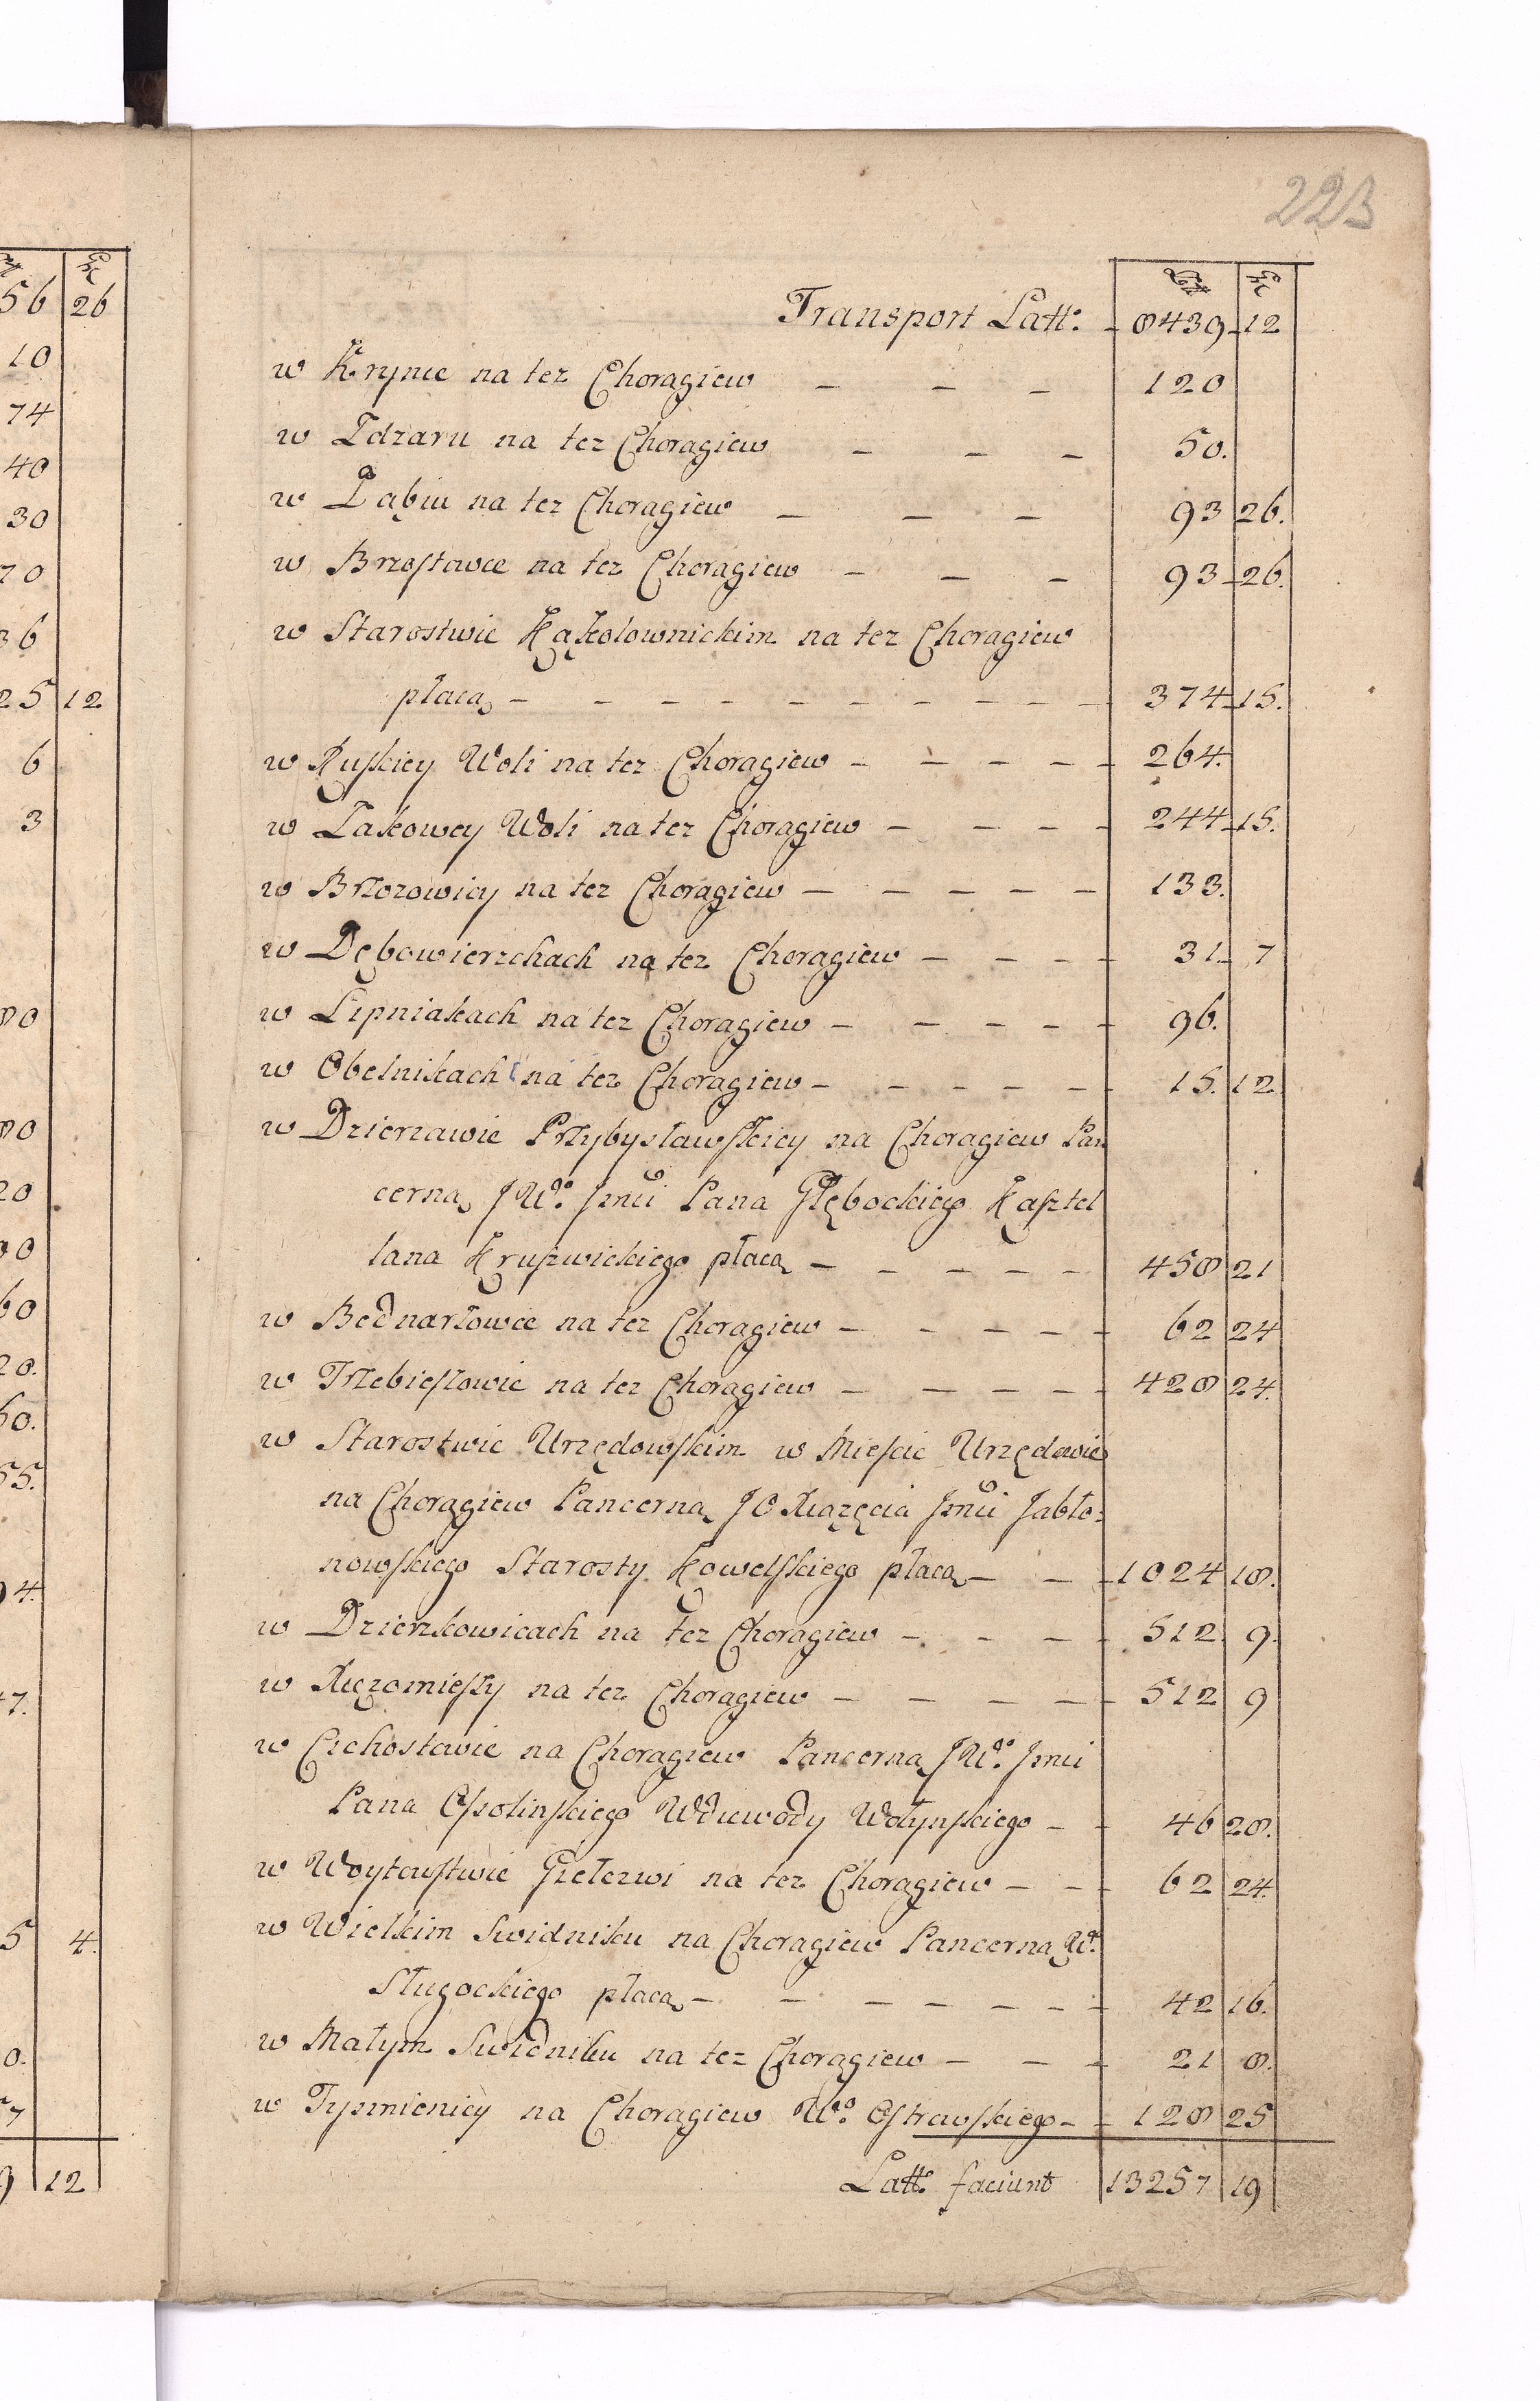 223
Transport Latt: 8439 12
w Krynce na tez Choragiew 120
w Zdzaru na tez Choragiew 50.
w Ząbiu na tez Choragiew 93 26.
w Brzostowce na tez Choragiew 93 26.
w Starostwie Kąkolownickim na tez Choragiew
płacą 374 15.
w Ruskiey Woli na tez Choragiew 264.
w Zakowey Woli na tez Choragiew 244 15.
w Brzozowicy na tez Choragiew 133.
w Dębowierzchach na tez Choragiew 31 7
w Lipniakach na tez Choragiew 96.
w Obelnikach na tez Choragiew 15. 12
w Dzierzawie Przybysławskiey na Choragiew Pan
cerną JWo. Jmci Pana Głębockiego Kasztel
lana Kruszwickiego płacą 458 21
w Bednarzowce na tez Choragiew 62 24
w Trzebieszowie na tez Choragiew 428 24.
w Starostwie Urzędowskim w Miescie Urzędowie
na Choragiew Pancerną JO Xiązęcia Jmci Jabło:
nowskiego Starosty Kowelskiego płacą 1024 18.
w Dzierzkowicach na tez Choragiew 512 9.
w Xięzomieszy na tez Choragiew 512 9
w Cichostowie na Choragiew Pancerną JWo. Jmci
Pana Ossolinskiego Wdiewody Wołynskiego 46 28.
w Woytowstwie Giełczwi na tez Choragiew 62 24.
w Wielkim Swidniku na Choragiew Pancerną W.
Sługockiego płacą 42 16.
w Małym Swidniku na tez Choragiew 21 8.
w Tysmienicy na Choragiew Wo. Ostrowskiego 128 25
Latt: faciunt 13257 19
56 26
10
74
40
30
70
36
25 12
6
3
80
80
20
60
20.
60.
55.
94.
47.
5 4.
0.
57
9 12